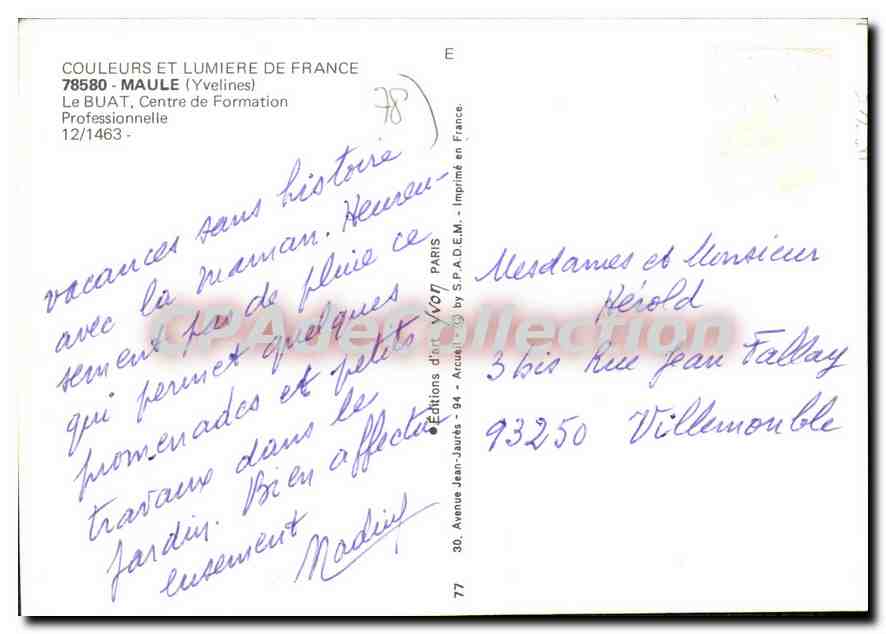 COULEURS ET LUMIERE DE FRANCE
78580 - MAULE (Yvelines)
Le BUAT, Centre de Formation
Professionnelle
12/1463 -
78
E
vacances sans histoire
avec la maman. Heureu-
sement pas de pluie ce
qui permet quelques
promenades et petits
travaux dans le
jardin. Bien affectu
eusement
Nadine
●Editions d'art Yvon PARIS
30, Avenue Jean-Jaurès - 94 - Arcueil - © by S.P.A.D.E.M. - Imprimé en France.
77
Mesdames et Monsieur
Hérold
3 bis Rue Jean Fallay
93250 Villemonble
CPAdeCollection